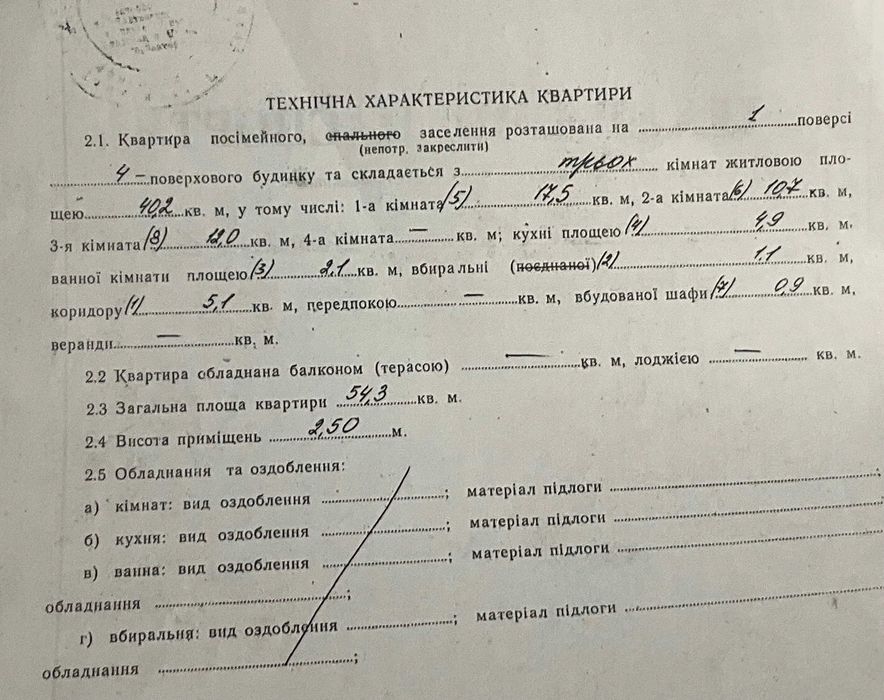 ТЕХНІЧНА ХАРАКТЕРИСТИКА КВАРТИРИ
2.1. Квартира посімейного, спального заселення розташована на 1 поверсі
(непотр. закреслити)
4 – поверхового будинку та складається з трьох кімнат житловою пло-
щею 40,2 кв. м, у тому числі: 1-а кімната (5) 17,5 кв. м, 2-а кімната (6) 10,7 кв. м,
3-я кімната (8) 12,0 кв. м, 4-а кімната — кв. м; кухні площею (4) 4,9 кв. м.
ванної кімнати площею (3) 2,1 кв. м, вбиральні (поєднаної) (2) 1,1 кв. м,
коридору (1) 5,1 кв. м, передпокою — кв. м, вбудованої шафи (7) 0,9 кв. м,
веранди — кв. м.
2.2 Квартира обладнана балконом (терасою) — кв. м, лоджією — кв. м.
2.3 Загальна площа квартири 54,3 кв. м.
2.4 Висота приміщень 2,50 м.
2.5 Обладнання та оздоблення:
а) кімнат: вид оздоблення ; матеріал підлоги ;
б) кухня: вид оздоблення ; матеріал підлоги
в) ванна: вид оздоблення ; матеріал підлоги
обладнання ;
г) вбиральня: вид оздоблення ; матеріал підлоги
обладнання ;